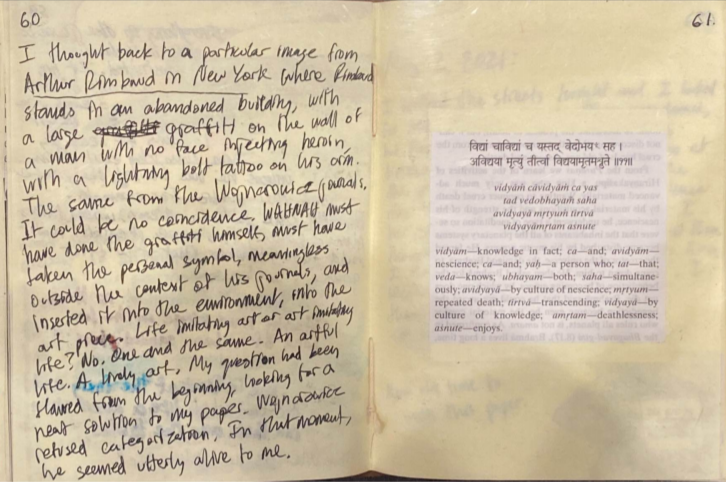 60
I thought back to a particular image from
Arthur Rimbaud in New York where Rimbaud
stands in an abandoned building, with
a large graffiti on the wall of
a man with no face injecting heroin,
with a lightning bolt tattoo on his arm.
The same from the Wojnarowicz journals.
It could be no coincidence, must
have done the graffiti himself, must have
taken the personal symbol, meaningless
outside the context of his journals, and
inserted it into the environment, into the
art piece. Life imitating art or art imitating
life? No. One and the same. An artful
life. A lively art. My question had been
flawed from the beginning, looking for a
neat solution to my paper. Wojnarowicz
refused categorization. In that moment,
he seemed utterly alive to me.
61
विद्यां चाविद्यां च यस्तद् वेदोभयꣳ सह ।
अविद्यया मृत्युं तीर्त्वा विद्ययामृतमश्नुते ॥११॥
vidyāṁ cāvidyāṁ ca yas
tad vedobhayaṁ saha
avidyayā mṛtyuṁ tīrtvā
vidyayāmṛtam aśnute
vidyām—knowledge in fact; ca—and; avidyām—
nescience; ca—and; yaḥ—a person who; tat—that;
veda—knows; ubhayam—both; saha—simultane-
ously; avidyayā—by culture of nescience; mṛtyum—
repeated death; tīrtvā—transcending; vidyayā—by
culture of knowledge; amṛtam—deathlessness;
aśnute—enjoys.